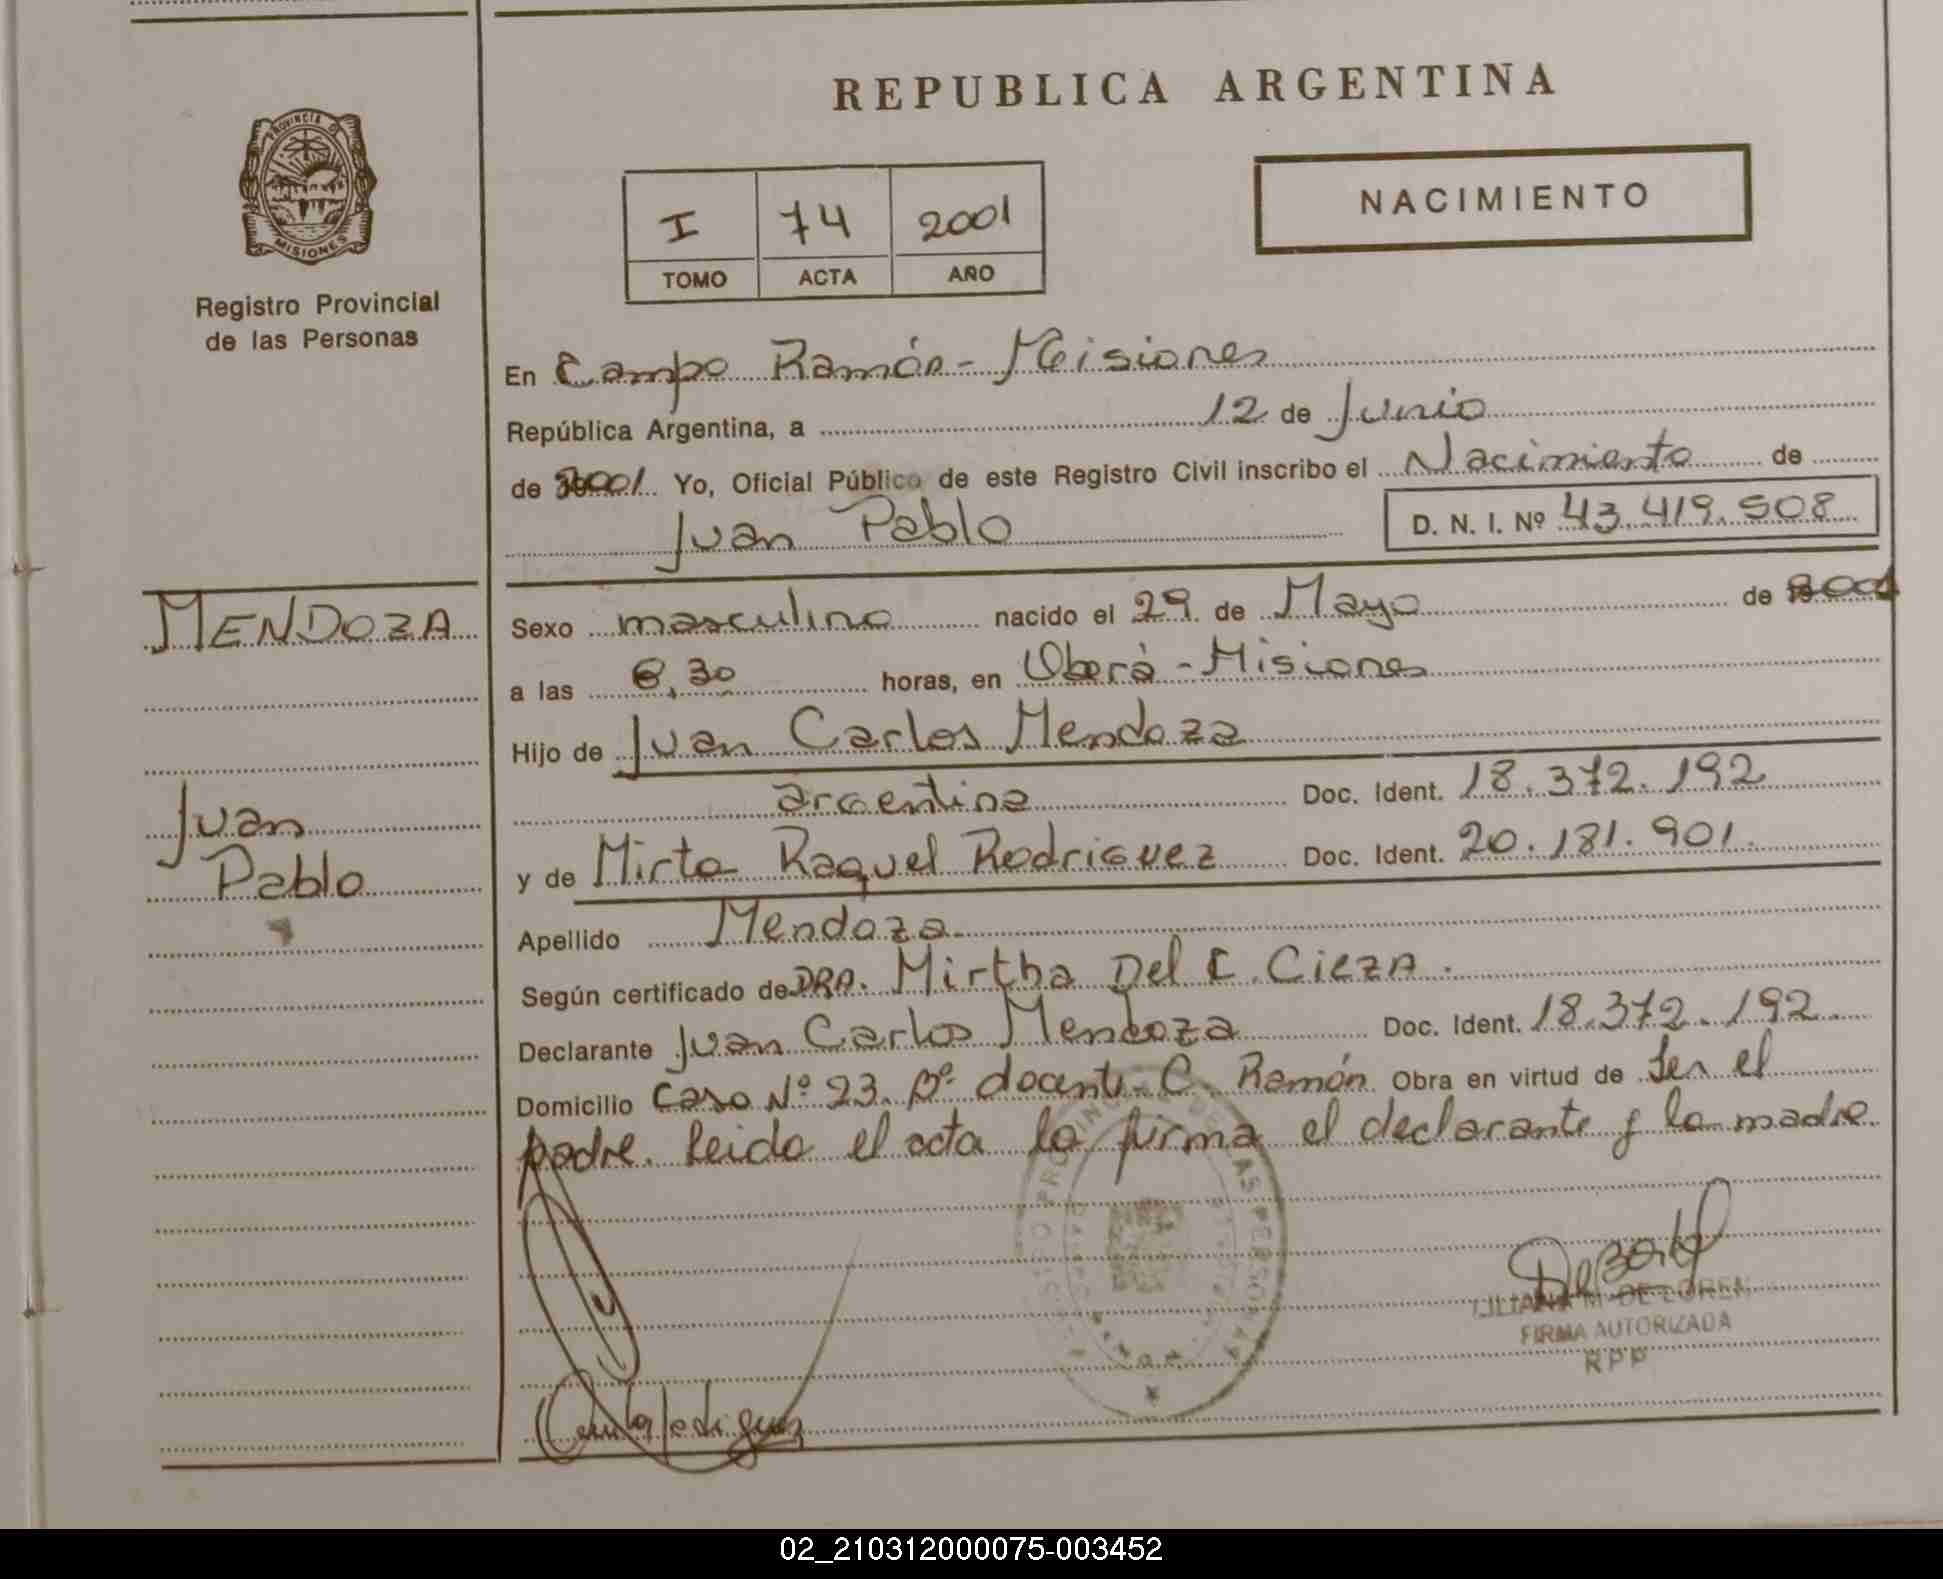 REPUBLICA ARGENTINA
PROVINCIA DE
MISIONES
Registro Provincial
de las Personas
I 74 2001
TOMO ACTA AÑO
NACIMIENTO
En Campo Ramón - Misiones
República Argentina, a 12 de Junio
de 2001 Yo, Oficial Público de este Registro Civil inscribo el Nacimiento de
Juan Pablo D. N. I. Nº 43.419.508
MENDOZA
Juan
Pablo
Sexo masculino nacido el 29 de Mayo de 2001
a las 8,30 horas, en Oberá - Misiones
Hijo de Juan Carlos Mendoza
argentina Doc. Ident. 18.372.192
y de Mirta Raquel Rodriguez Doc. Ident. 20.181.901.
Apellido Mendoza
Según certificado de DRA. Mirtha Del C. CiezA.
Declarante Juan Carlos Mendoza Doc. Ident. 18.372.192.
Domicilio Casa Nº 23 Bº docente C. Ramón Obra en virtud de Ser el
padre. Leida el acta la firma el declarante y la madre
LILIANA M DE LOREN
FIRMA AUTORIZADA
RPP
02_210312000075-003452